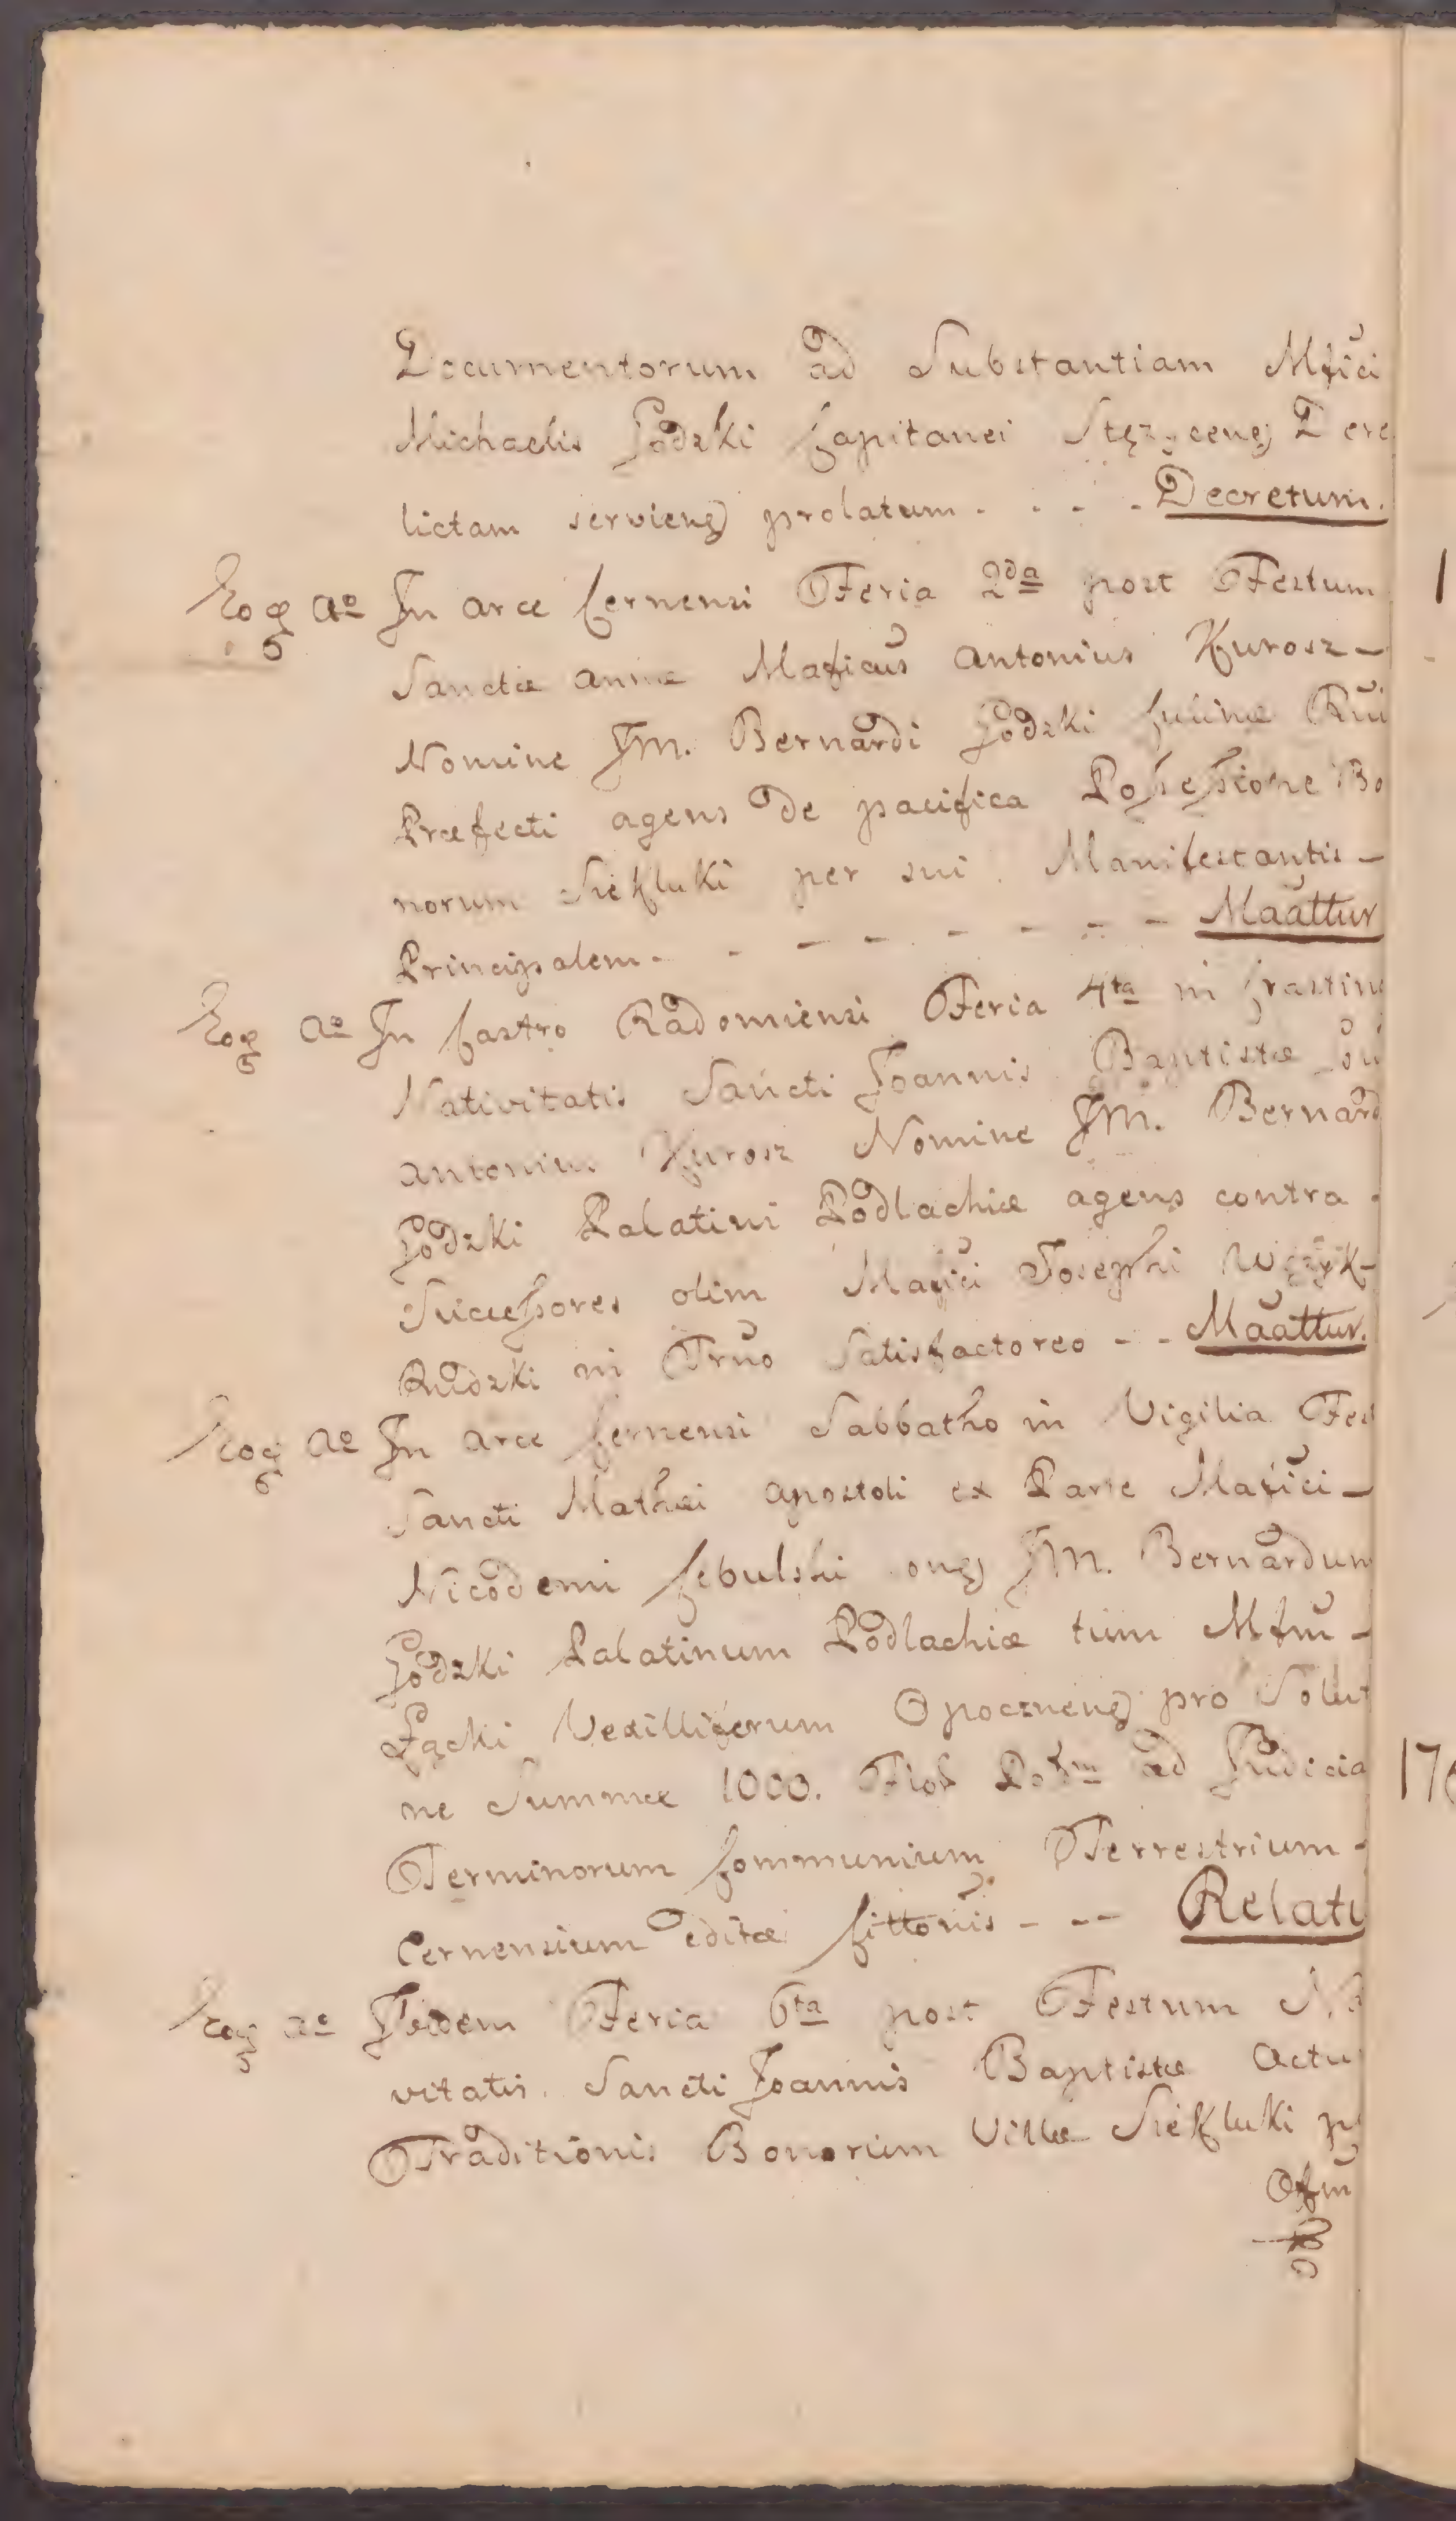 Documentorum ad Substantiam Mfici
Michaelis Godzki Capitanei Stęzyceneg Dere
lictam servieneg prolatum - . . . Decretum.
Eog ao In arce Cernensi Feria 2da post Festum
Sanctæ annæ Maficus antonius Kurosz -
Nomine JM. Bernardi Godzki
Præfecti agens de pacifica Possessione Bo
norum Siekluki per sui Manifestantis -
Principalem - - - - - - - - Maattur
Eog ao In Castro Radomiensi Feria 4ta in Crastino
Nativitatis Sancti Joannis Baptistæ
antonius Kurosz Nomine JM. Bernard
Godzki Palatini Podlachiæ agens contra
Successores olim Mafici Josephi
Rudzki in Trno Satisfactoreo - - Maattur.
Eog ao In arce Cernensi Sabbatho in Vigilia Fes
Sancti Mathæi apostoli ex Parte Mafici -
Nicodemi Cebulski oneg JM. Bernardum
Godzki Palatinum Podlachiæ tum Mfm -
Łącki Vexilliferum Opoczneneg pro Solut
ne Summæ 1000. Flor ad Judicia
Terminorum Communium Terrestrium -
Cernensium editæ Cittonis - - - Relati
Eog ao Ibidem Feria 6ta post Festum Na
vitatis Sancti Joannis Baptistæ Actu
Traditionis Bonorum Villæ Siekluki p
Ofm
1
176